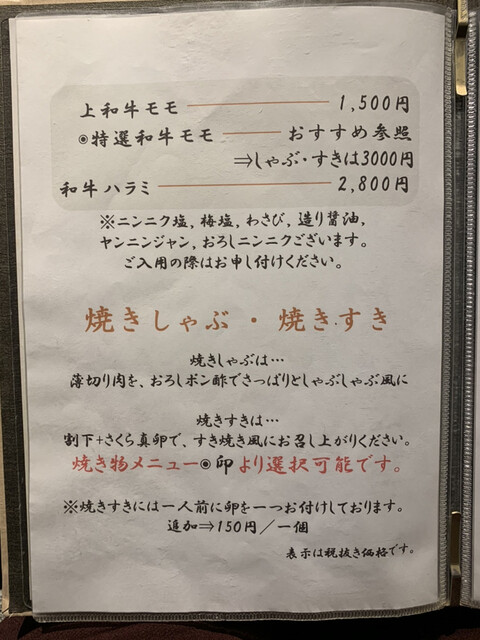 上和牛モモ 1,500円
◉特選和牛モモ おすすめ参照
⇒しゃぶ・すきは3000円
和牛ハラミ 2,800円
※ニンニク塩,梅塩,わさび,造り醤油,
ヤンニンジャン,おろしニンニクございます。
ご入用の際はお申し付けください。
焼きしゃぶ・焼きすき
焼きしゃぶは…
薄切り肉を、おろしポン酢でさっぱりとしゃぶしゃぶ風に
焼きすきは…
割下+さくら真卵で、すき焼き風にお召し上がりください。
焼き物メニュー◉印より選択可能です。
※焼きすきには一人前に卵を一つお付けしております。
追加⇒150円/一個
表示は税抜き価格です。